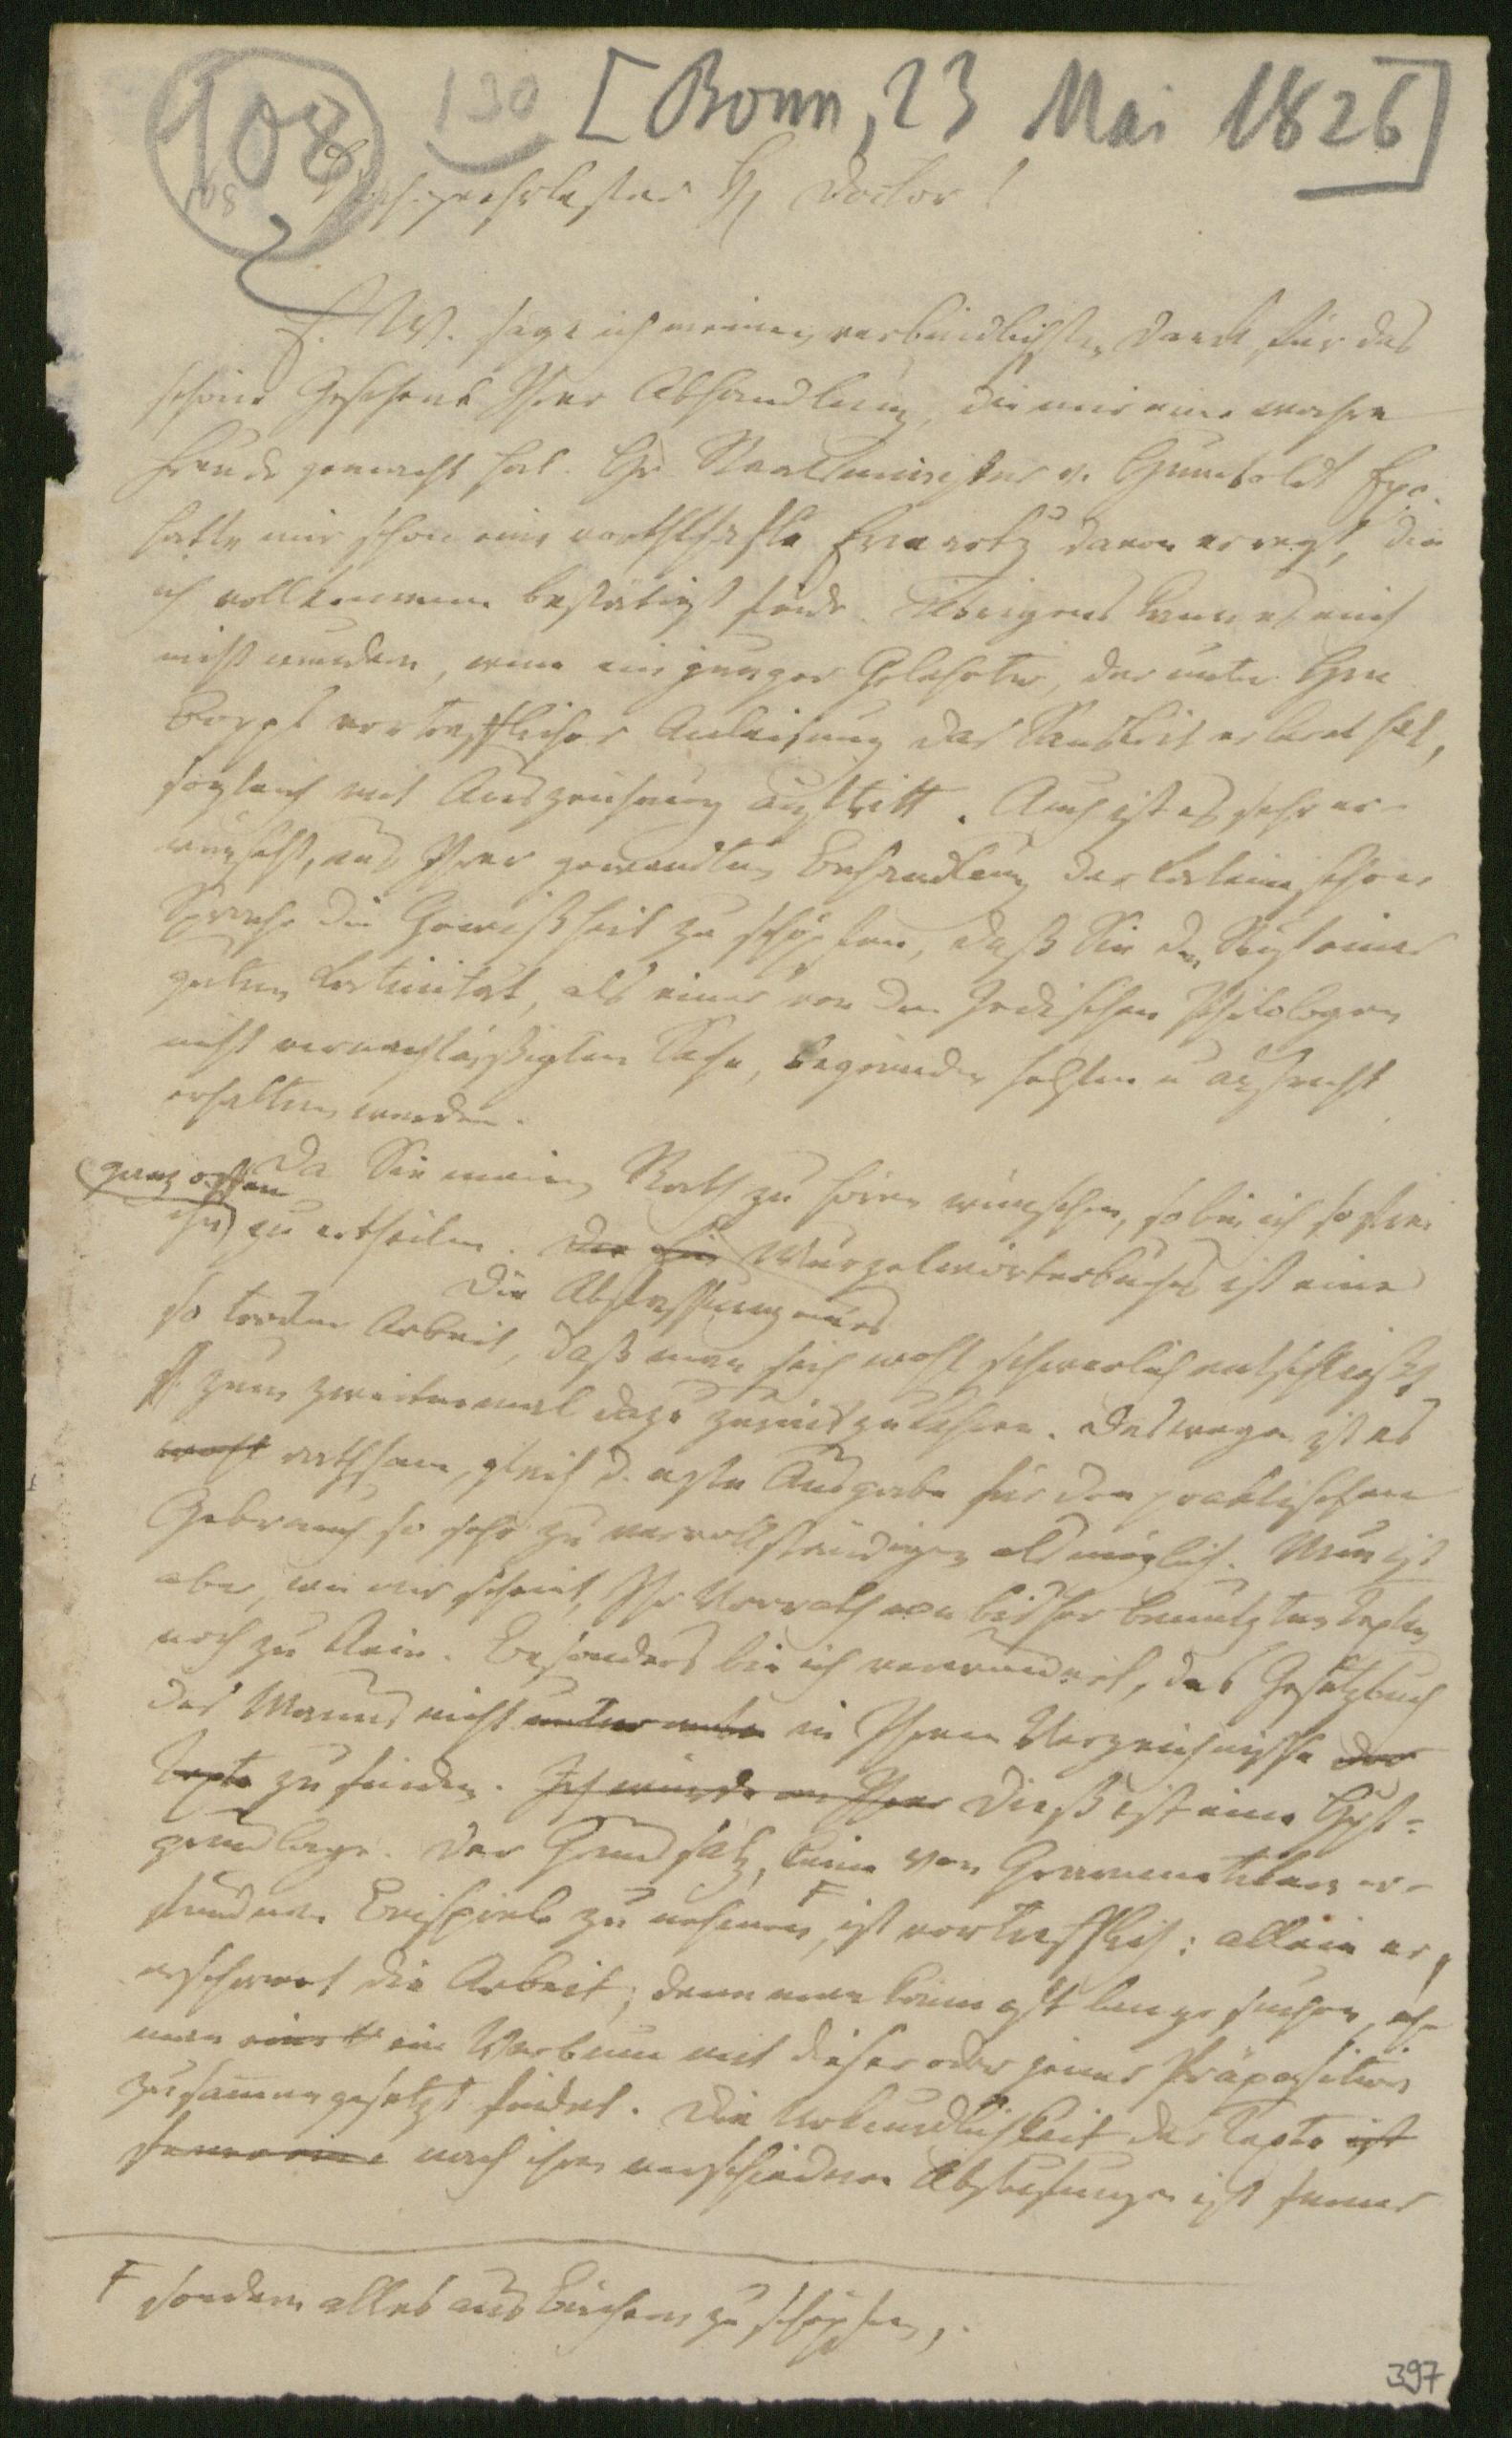 108
130 [Bonn, 23 Mai 1826]
108
Hochgeehrtester H Doctor!
E. W. sage ich meinen verbindlichsten Dank für das
schöne Geschenk Ihrer Abhandlung, die mir eine wahre
Freude gemacht hat. Hr Staatsminister v. Humboldt Exc.
hatte mir schon eine vortheilhafte Erwartg davon erregt, die
ich vollkommen bestätigt finde. Übrigens kann es mich
nicht wundern, wenn ein junger Gelehrter, der unter Hrn
Bopps vortrefflicher Anleitung das Sanskrit erlernt hat,
sogleich mit Auszeichnung auftritt. Auch ist es sehr er-
wünscht, aus Ihrer gewandten Behandlung der lateinischen
Sprache die Gewißheit zu schöpfen, daß Sie den Ruf einer
guten Latinität, als einer von den Indischen Philologen
nicht vernachläßigten Sache, begründen helfen u aufrecht
erhalten werden.
Da Sie meinen Rath zu hören wünschen, so bin ich so frei
ganz offen
ihn zu ertheilen. Der Ein Wurzelwörterbuches ist eine
Die Abfassung eines
so trockne Arbeit, daß man sich wohl schwerlich entschließt
zum zweitenmal dazu zurückzukehren. Deswegen ist es
wohl rathsam, gleich d. erste Ausgabe für den praktischen
Gebrauch so sehr zu vervollständigen als möglich. Nun ist
aber, wie mir scheint, Ihr Vorrath von bisher benutzten Texten
noch zu klein. Besonders bin ich verwundert, das Gesetzbuch
des Manus nicht unter in Ihrem Verzeichnisse der
Texte zu finden. Ich würde Ihnen Dieß ist eine Haupt-
grundlage. Der Grundsatz, keine von Grammatikern er-
fundenen Beispiele zu nehmen, F ist vortrefflich: allein er
erschwert die Arbeit; denn man kann oft lange suchen, ehe
man ein Verbum mit dieser oder jener Präposition
zusammengesetzt findet. Die Urkundlichkeit der Texte ist
nach ihren verschiednen Abstufungen ist ferner
F sondern alles aus Büchern zu schöpfen,
397